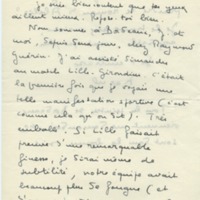 Je suis bien content que tes yeux
aillent mieux. Repose-toi bien.
Nous sommes à Bordeaux, J. et
moi, depuis deux jours, chez Raymond
Guérin. J'ai assisté dimanche
au match Lille-Girondins. C'était
la première fois que je voyais une
telle manifestation sportive (c'est
comme cela qu'on dit). Très
emballé. Si Lille faisait
preuve d'une remarquable
finesse, je dirai même de
subtilité, notre équipe avait
beaucoup plus de fougue (et